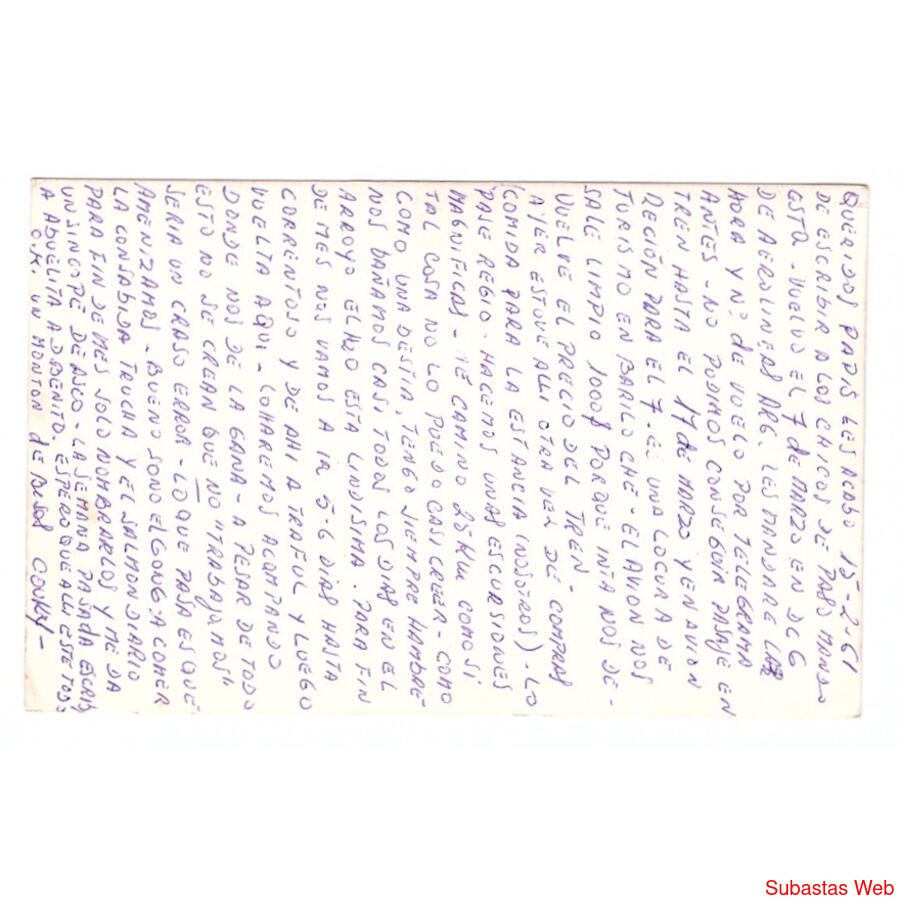 15-2-61
QUERIDOS PAPIS LES ACABO
DE ESCRIBIR A LOS CHICOS DE PABS MANDO
ESTA - VUELVO EL 7 de MARZO EN DC6
DE AEROLINEAS ARG. LES MANDARE LA
HORA Y Nº de VUELO POR TELEGRAMA
ANTES - NO PODIMOS CONSEGUIR PASAJE EN
TREN HASTA EL 17 de MARZO Y EN AVION
RECIÓN PARA EL 7 - ES UNA LOCURA DE
TURISMO EN BARILOCHE - EL AVION NOS
SALE LIMPIO 1000$ PORQUE INTA NOS DE-
VUELVE EL PRECIO DEL TREN - COMPRAS
AYER ESTUVE ALLI OTRA VEZ DE
COMIDA PARA LA ESTANCIA (NOSOTROS) - LO
PASE REGIO - HACEMOS UNAS ESCURSIONES
MAGUIFICAS - ME CAMINO 25 KM COMO SI
TAL COSA NO LO PUEDO CASI CREER - COMO
COMO UNA BESTIA, TENGO SIEMPRE HAMBRE -
NOS BAÑAMOS CASI TODOS LOS DIAS EN EL
ARROYO EL H2O ESTA LINDISIMA - PARA FIN
DE MES NOS VAMOS A IR 5-6 DIAS HASTA
CORRENTOSO Y DE AHI A TRAFUL Y LUEGO
VUELTA AQUI - LO HAREMOS ACAMPANDO
DONDE NOS DE LA GANA - A PESAR DE TODO
ESTO NO SE CREAN QUE NO "TRABAJAMOS"
SERIA UN CRASO ERROR - LO QUE PASA ES QUE
AMENIZAMOS - BUENO SONO EL GONG; A COMER
LA CONSABIDA TRUCHA Y EL SALMON DIARIO
PARA FIN DE MES SOLO NOMBRARLOS Y ME DA
UN SINCOPE DE ASCO - LA SEMANA PASADA ESCRIBI
A ABUELITA ADBENTO, ESPERO QUE ALLI ESTE TODO
O.K. UN MONTON de BESOS